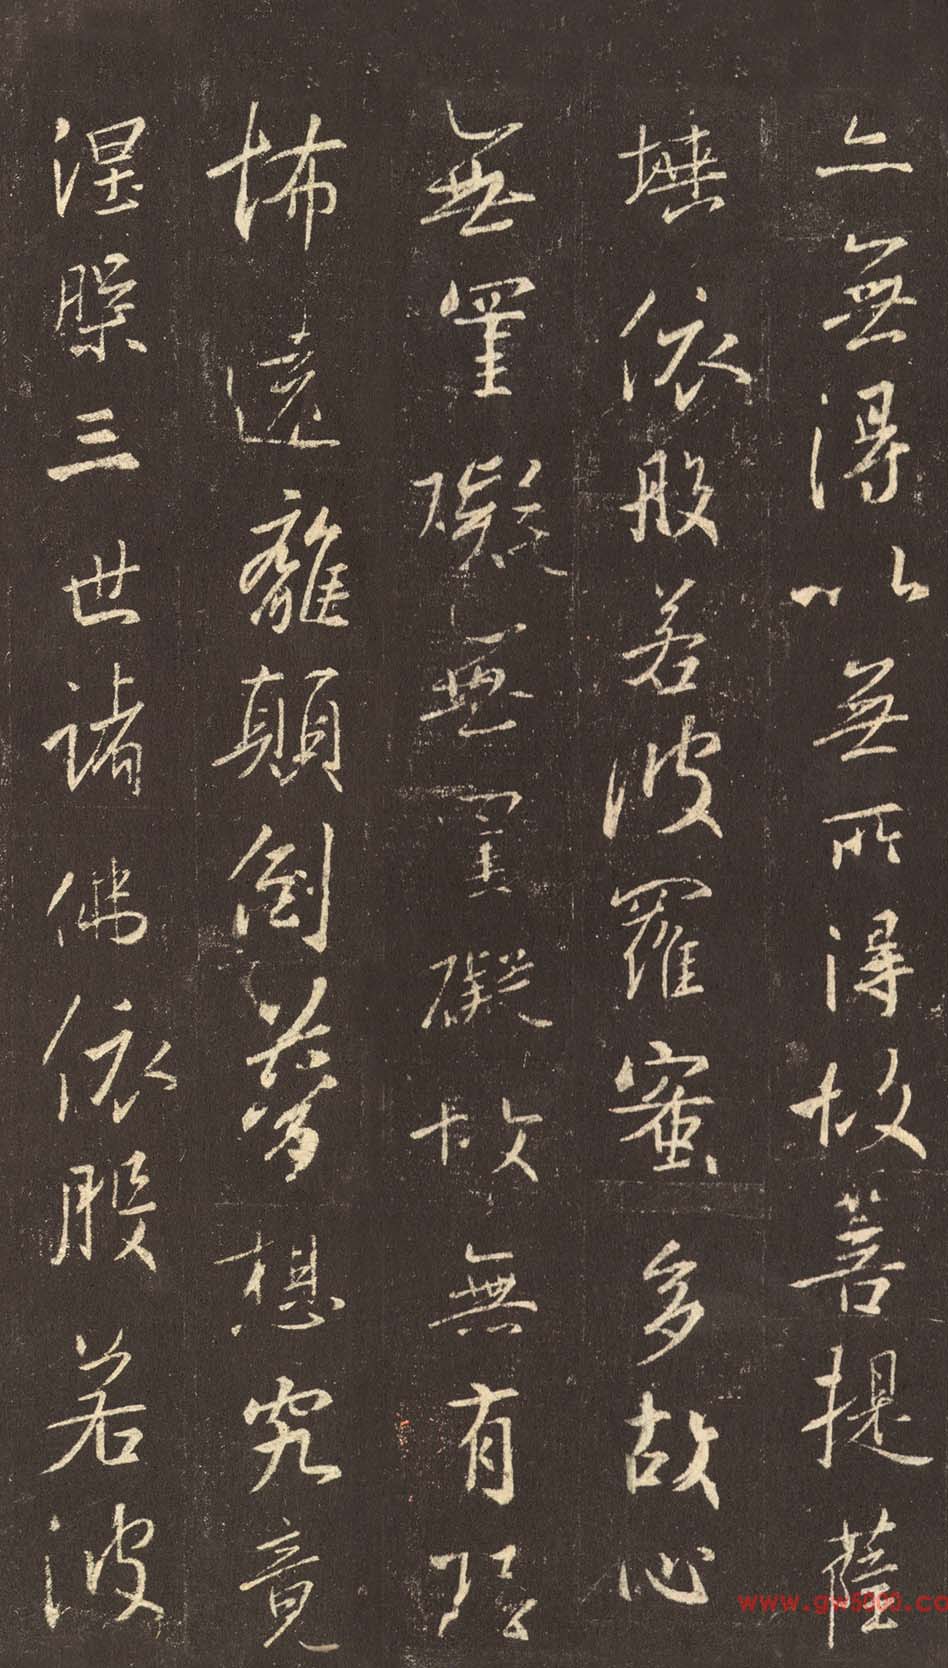 亦無得以無所得故菩提薩
埵依般若波羅蜜多故心
無罣礙無罣礙故無有恐
怖遠離顛倒夢想究竟
涅槃三世諸佛依般若波
www.gw5000.co